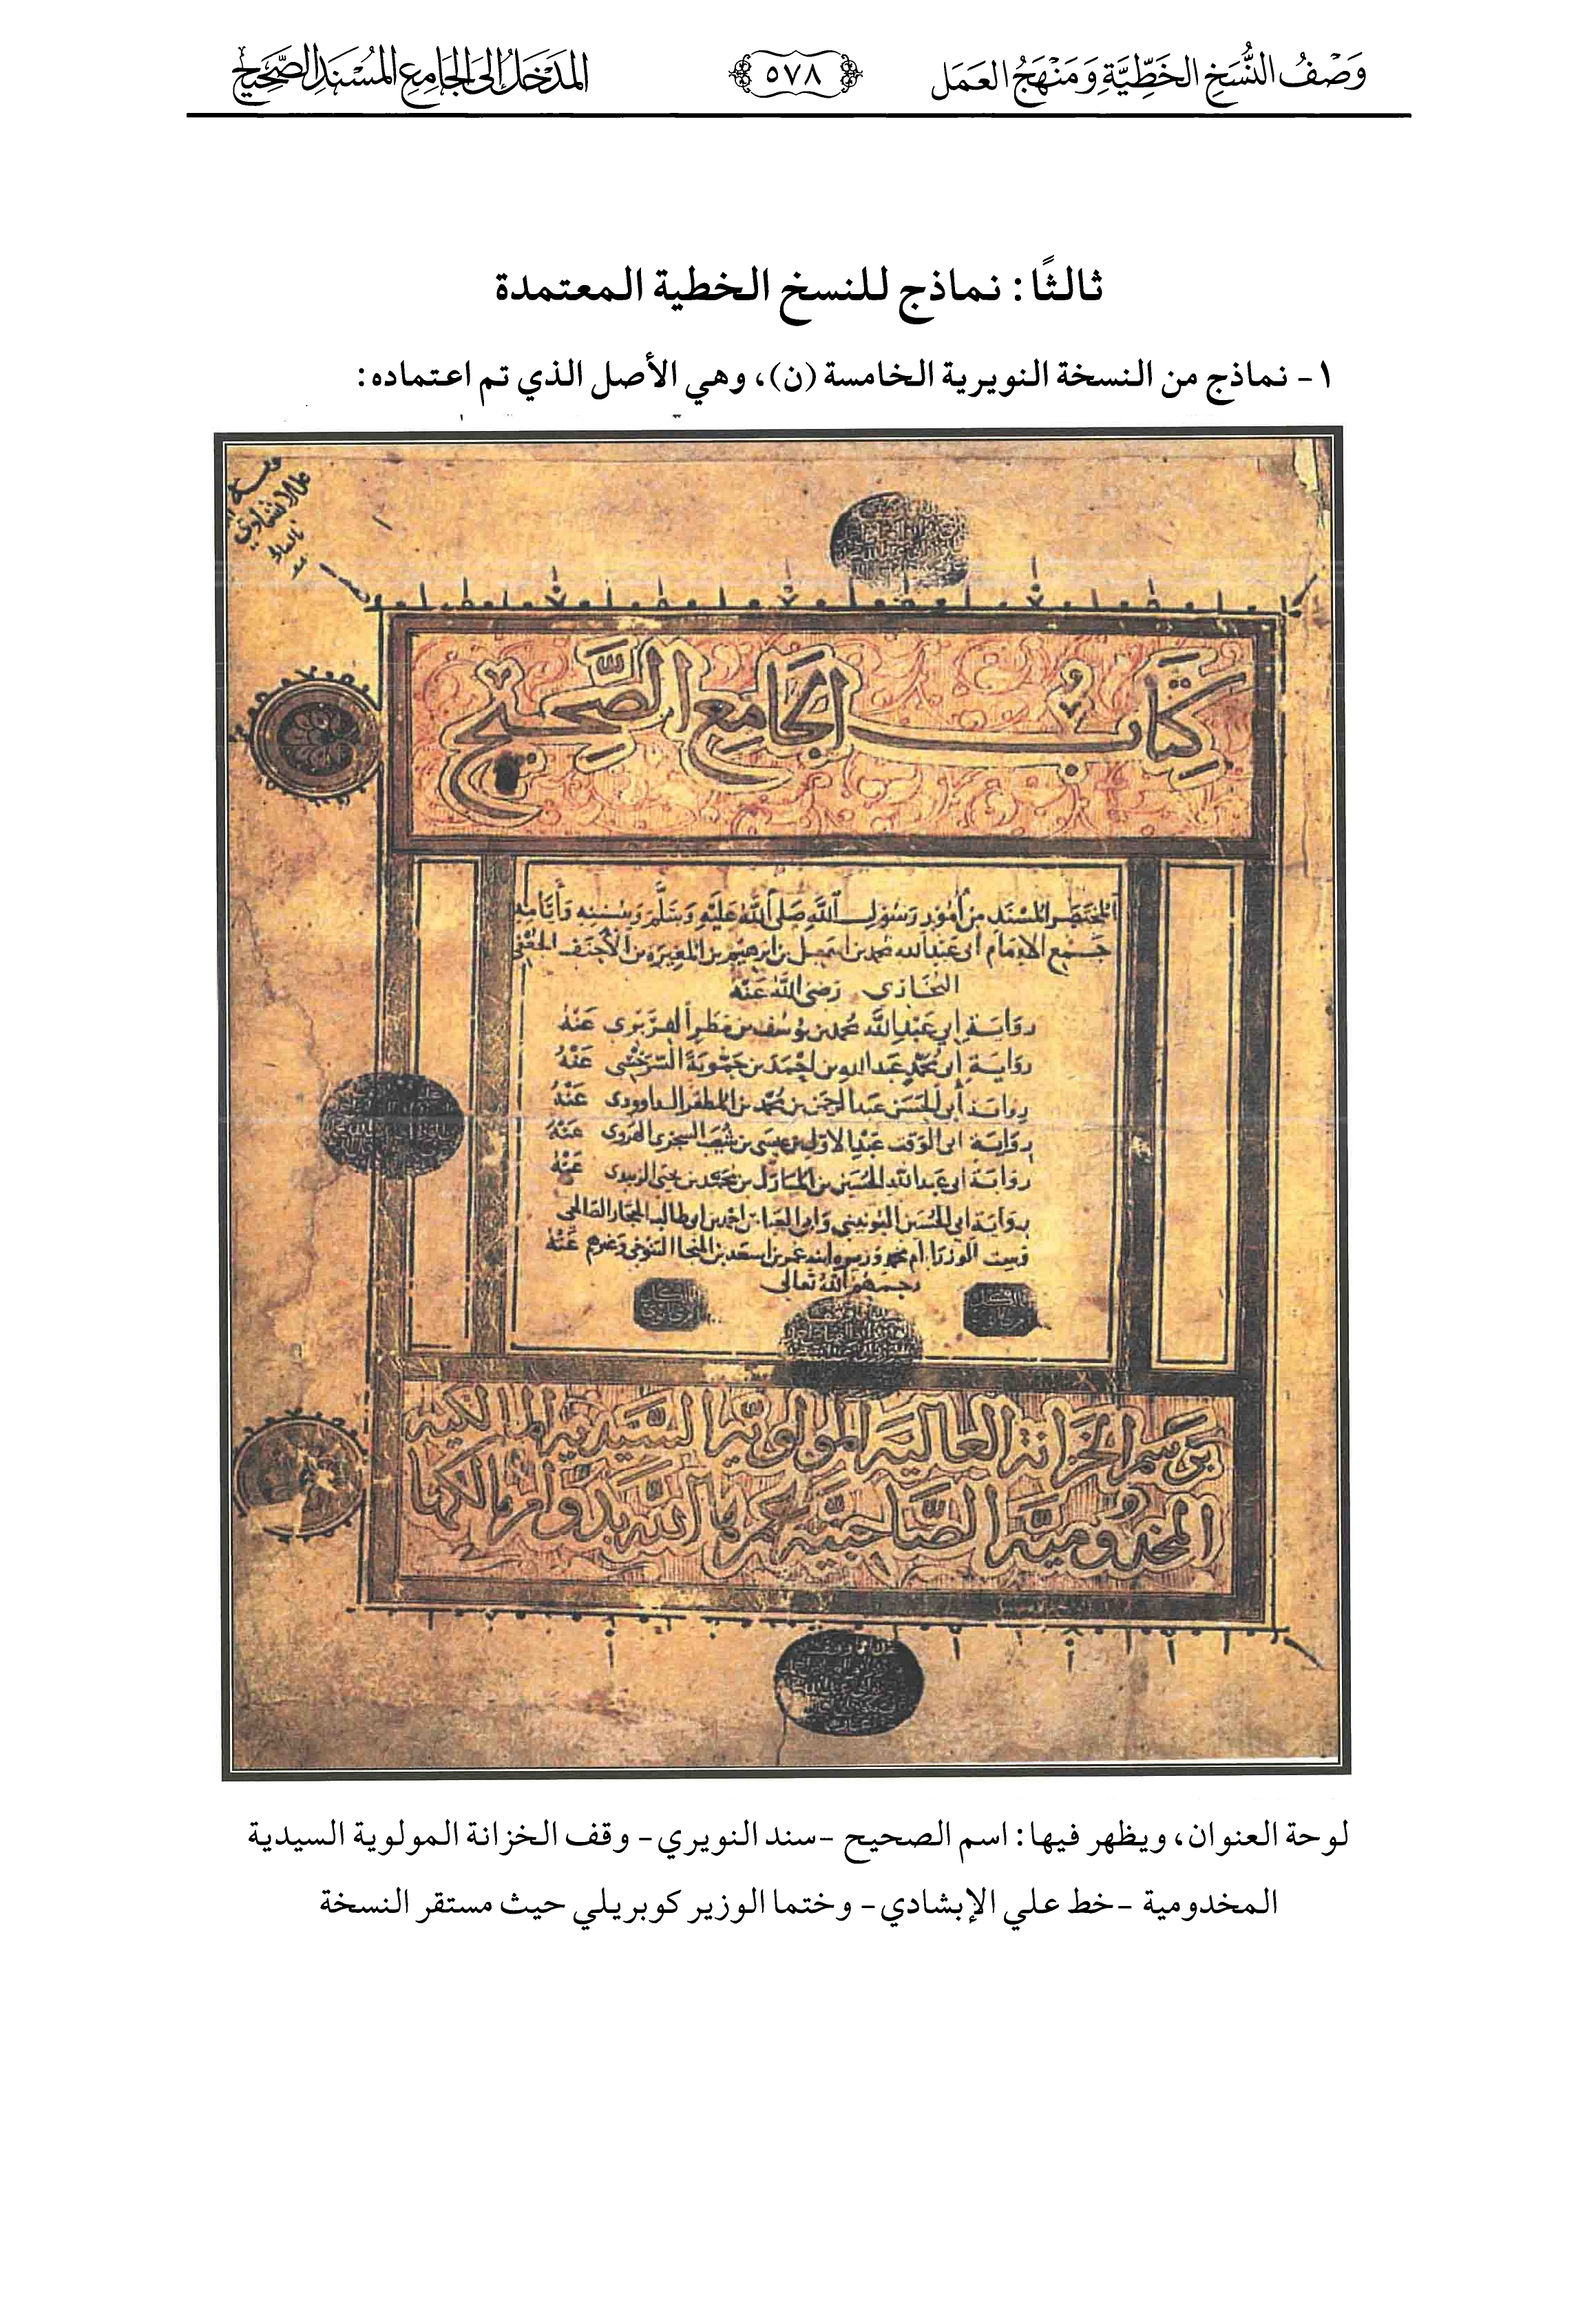 وَصْفُ النُّسَخِ الخَطِّيَّةِ وَمَنْهَجُ العَمَل
٥٧٨
المَدْخَلُ إِلَى الجَامِعِ المُسْنَدِ الصَّحِيحِ
ثالثًا: نماذج للنسخ الخطية المعتمدة
١- نماذج من النسخة النويرية الخامسة (ن)، وهي الأصل الذي تم اعتماده:
كِتَابُ الجَامِعِ الصَّحِيحِ
المختصر المسند من أمور رسول الله صلى الله عليه وسلم وسننه وأيامه
جمع الامام ابى عبد الله محمد بن اسمعيل بن ابرهيم بن المغيرة بن الأحنف الجعفي
البخاري رضى الله عنه
رواية أبي عبد الله محمد بن يوسف بن مطر الفربرى عنه
رواية أبى محمد عبد الله بن احمد بن حمويه السرخسى عنه
رواية أبى الحسن عبد الرحمن بن محمد بن المظفر الداوودى عنه
رواية ابى الوقت عبد الاول بن عيسى بن شعيب السجزى الهروى عنه
رواية ابى عبد الله الحسين بن المبارك بن محمد بن يحيى الزبيدى عنه
رواية ابى الحسين اليونيني وابى العباس احمد بن ابى طالب الحجار الصالحي
وست الوزراء ام محمد وزيره ابنه عمر بن اسعد بن المنجا التنوخى وغيرهم عنه
رحمهم الله تعالى
برسم الخزانة العالية المولوية السيدية المالكية
المخدومية الصاحبية عمرها الله بدوام مالكها
لوحة العنوان، ويظهر فيها: اسم الصحيح -سند النويري- وقف الخزانة المولوية السيدية
المخدومية -خط علي الإبشادي- وختما الوزير كوبريلي حيث مستقر النسخة